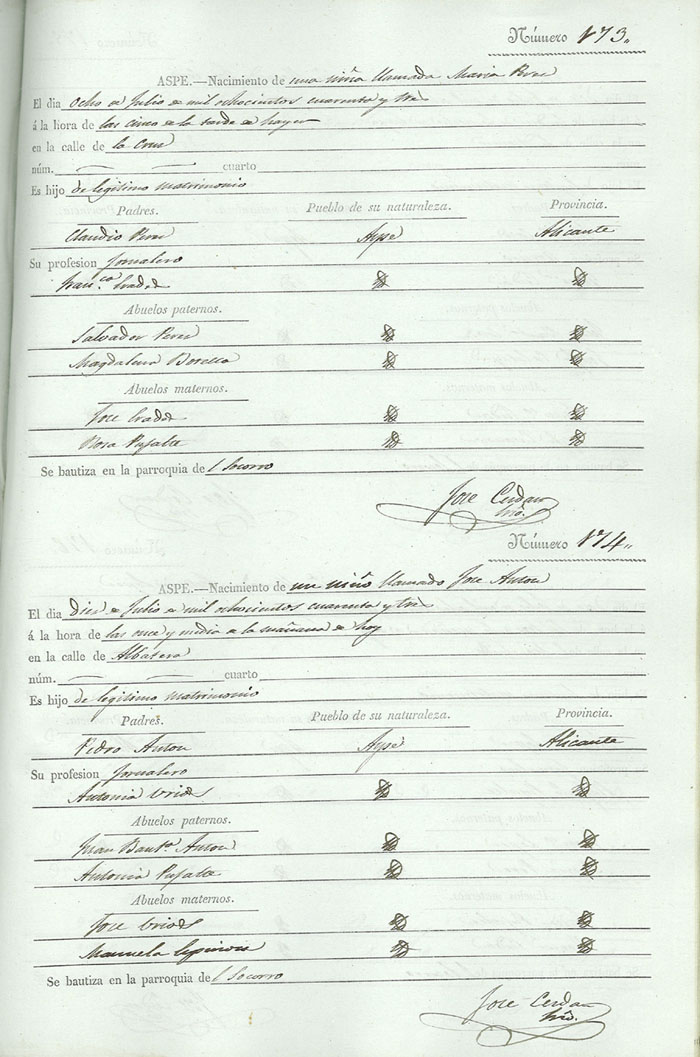 Número 173.
ASPE.—Nacimiento de una niña llamada Maria Perez
El dia ocho de Julio de mil ochocientos cuarenta y tres
á la hora de las cinco de la tarde de hayer
en la calle de la Cruz
núm. cuarto
Es hijo de legitimo matrimonio
Padres. Pueblo de su naturaleza. Provincia.
Claudio Perez Aspe Alicante
Su profesion Jornalero
Fran.ca
Abuelos paternos.
Salvador Perez
Magdalena Botella
Abuelos maternos.
Jose
Rosa Pujalte
Se bautiza en la parroquia del Socorro
Jose Cerdan
Srio.
Número 174.
ASPE.—Nacimiento de un niño llamado Jose Anton
El dia diez de Julio de mil ochocientos cuarenta y tres
á la hora de las once y media de la mañana de hoy
en la calle de Albatera
núm. cuarto
Es hijo de legitimo matrimonio
Padres. Pueblo de su naturaleza. Provincia.
Pedro Anton Aspe Alicante
Su profesion Jornalero
Antonia Urios
Abuelos paternos.
Juan Baut.a Anton
Antonia Pujalte
Abuelos maternos.
Jose Urios
Manuela
Se bautiza en la parroquia del Socorro
Jose Cerdan
Srio.